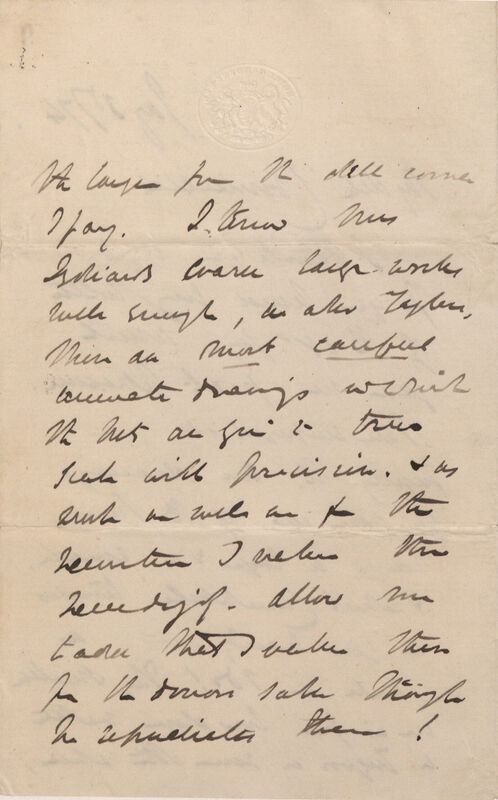 the large for the
I fay. I know Mrs
coarse large works
well enough, as also Taylors,
these are most careful
accurate drawings in which
the are given to true
scale with precision. & as
such as well as for the
I value them
exceedingly. Allow me
to add that I value them
for the donors sake though
he repudiates them!